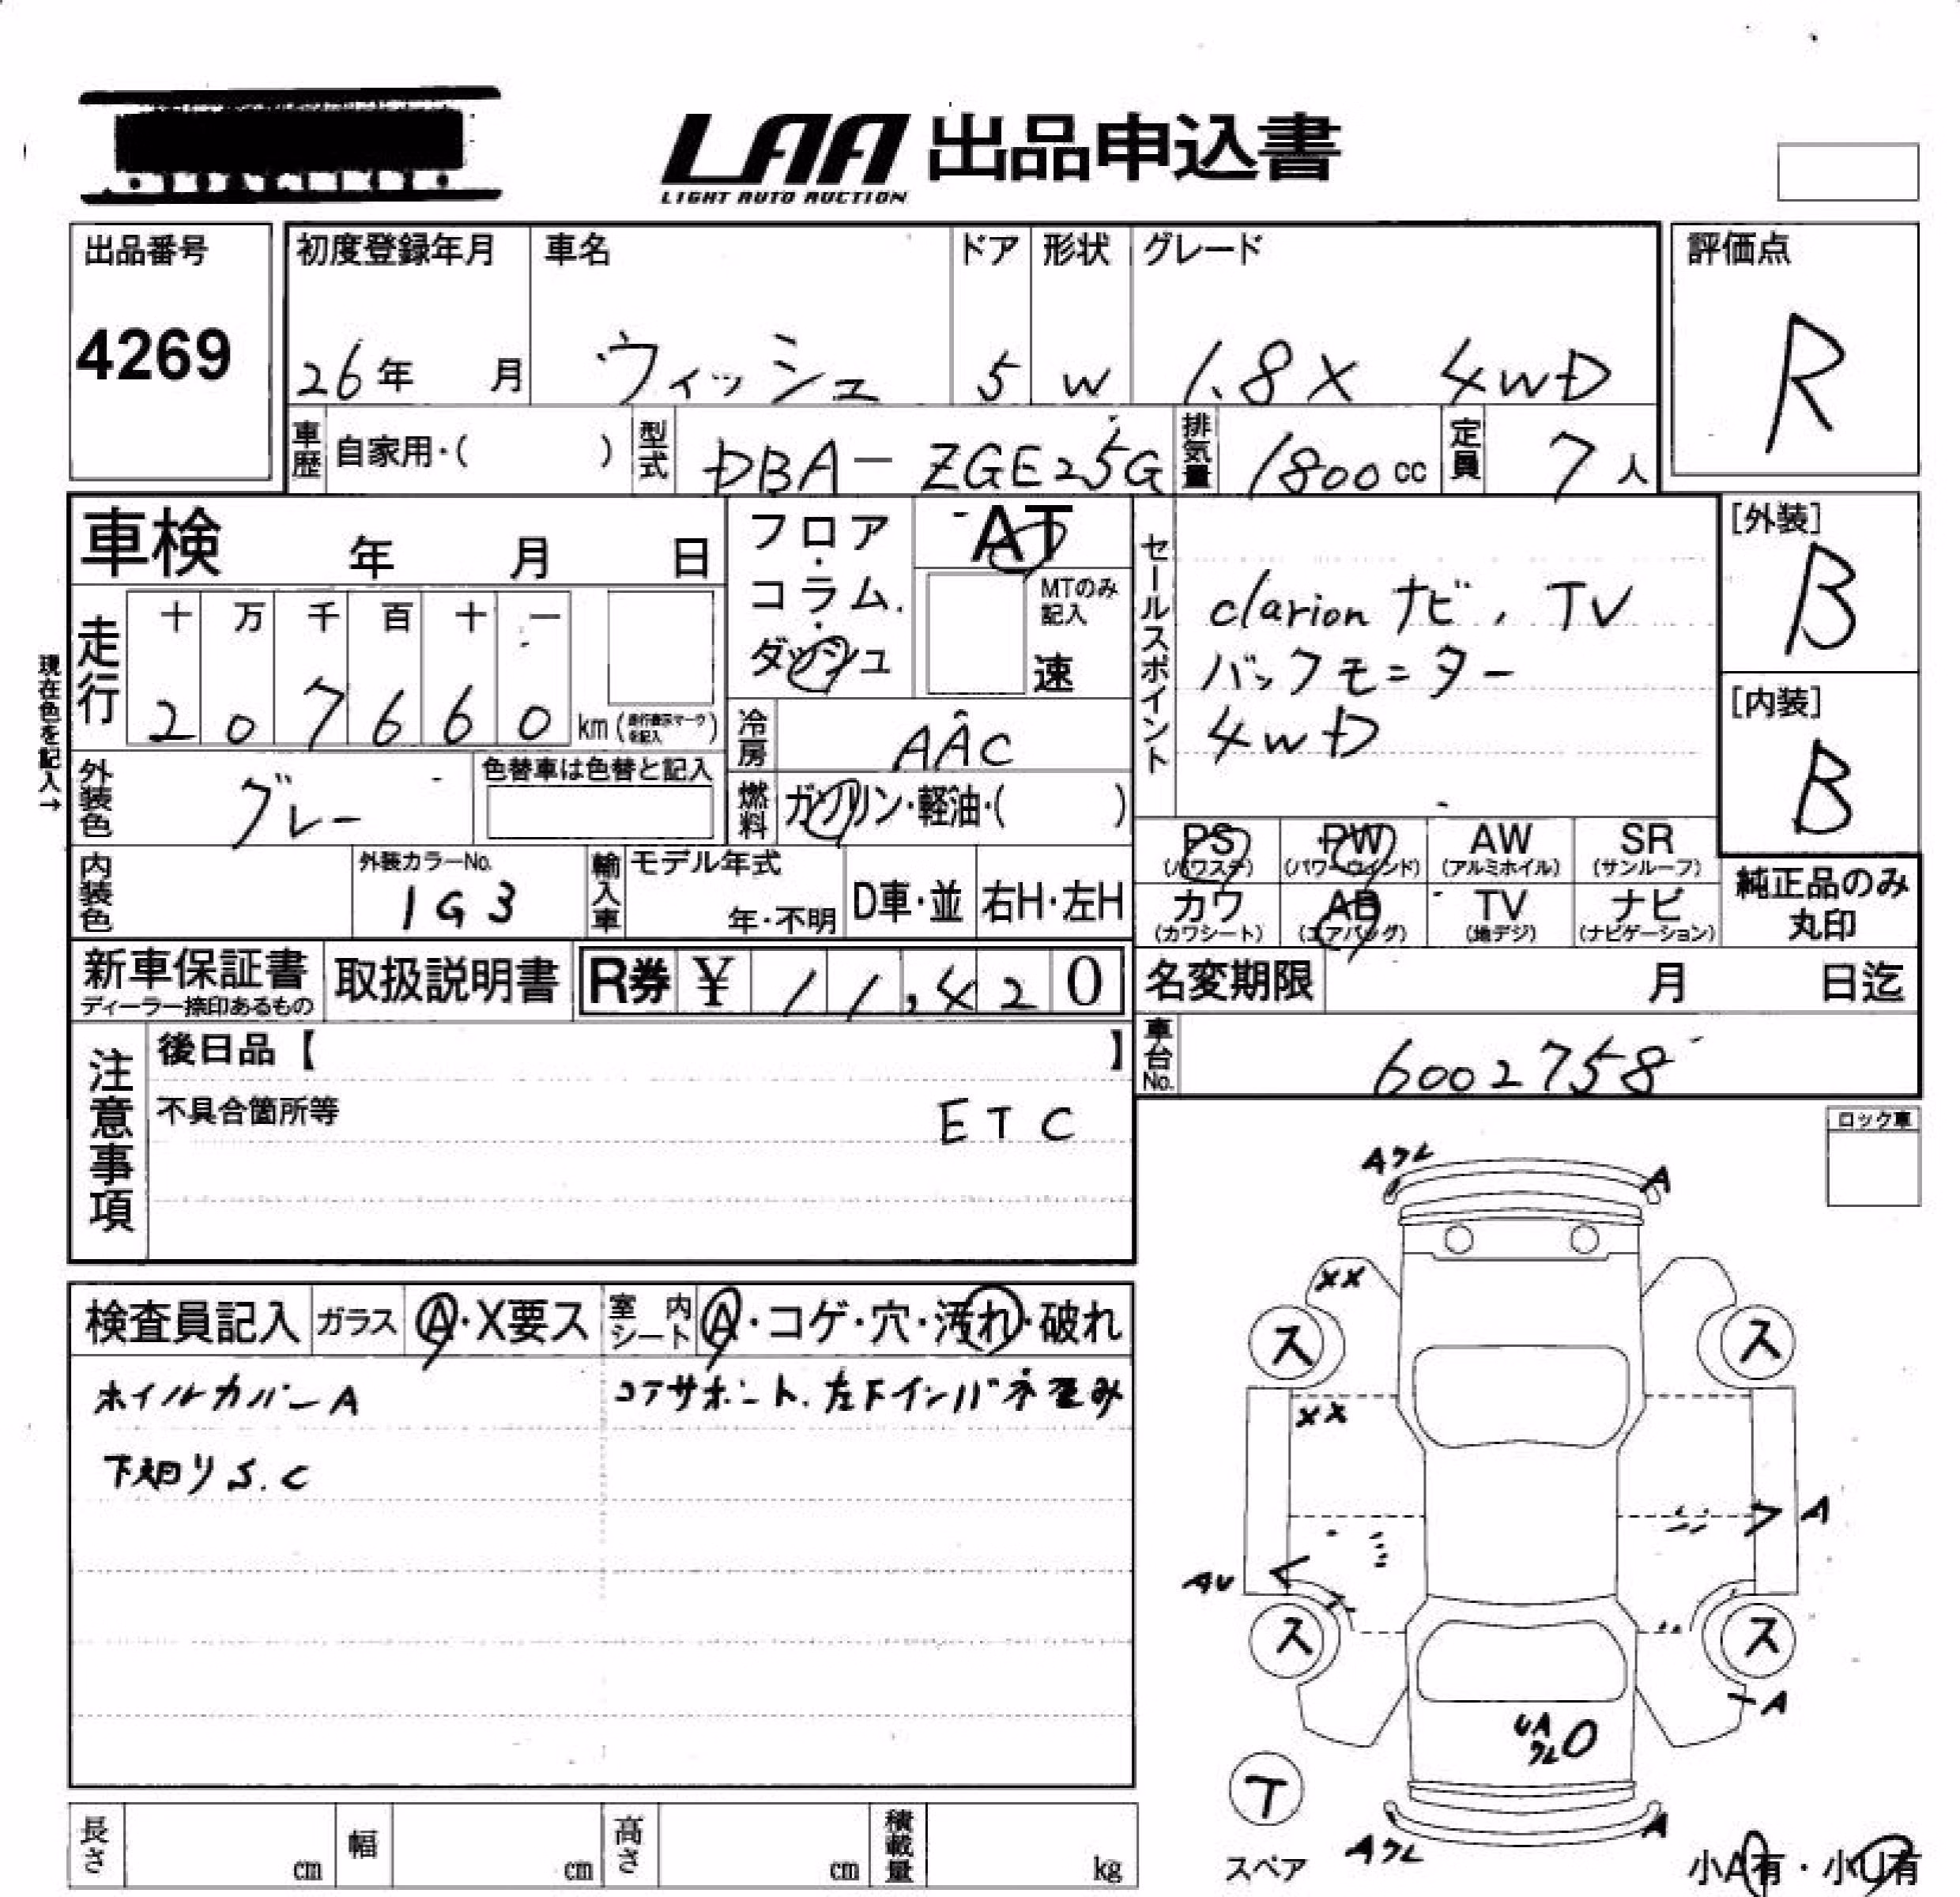 LAA 出品申込書
LIGHT AUTO AUCTION
出品番号
4269
初度登録年月
26年 月
車名
ウィッシュ
ドア
5
形状
W
グレード
1.8X 4WD
評価点
R
車歴 自家用・( )
型式 DBA-ZGE25G
排気量 1800cc
定員 7人
車検 年 月 日
フロア・コラム・ダッシュ
AT
MTのみ記入
速
セールスポイント
clarion ナビ、TV
バックモニター
4WD
[外装]
B
[内装]
B
現在色を記入→
走行
十 万 千 百 十 一
2 0 7 6 6 0 km
冷房 AAC
外装色 グレー
色替車は色替と記入
燃料 ガソリン・軽油・( )
PS (パワステ)
PW (パワーウィンド)
AW (アルミホイル)
SR (サンルーフ)
カワ (カワシート)
AB (エアバッグ)
TV (地デジ)
ナビ (ナビゲーション)
純正品のみ
丸印
内装色
外装カラーNo.
1G3
輸入車
モデル年式
年・不明
D車・並
右H・左H
新車保証書
ディーラー捺印あるもの
取扱説明書
R券 ¥ 11,420
名変期限 月 日迄
車台No. 6002758
注意事項
後日品【 】
不具合箇所等
ETC
ロック車
検査員記入
ガラス A・X要ス
室内シート A・コゲ・穴・汚れ・破れ
ホイルカバーA
コアサポート、左下インパネ歪み
下廻りS.C
Aクレ
A
XX
ス
ス
XX
A
AU
ス
ス
A
UA
クレ
T
スペア
Aクレ
A
小A有・小U有
長さ cm
幅 cm
高さ cm
積載量 kg